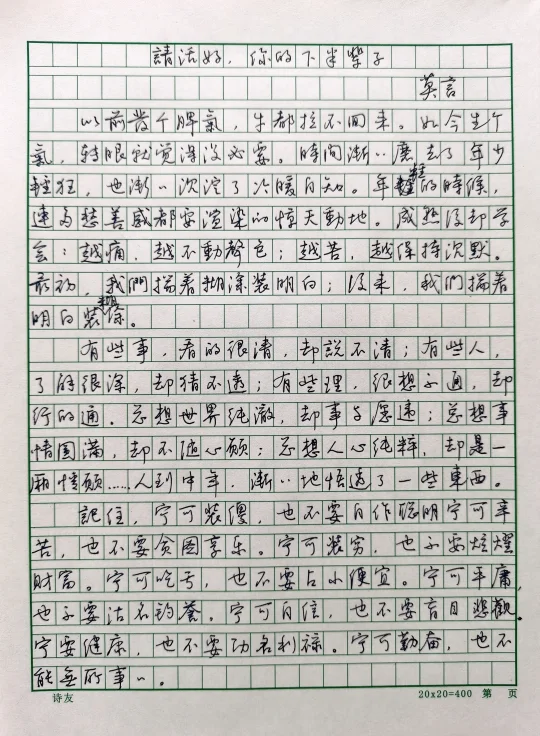 請活好，你的下半輩子
莫言
以前发个脾氣，牛都拉不回来。如今生个
氣，转眼就觉得没必要。時間漸〃磨去了年少
轻狂，也漸〃沉淀了冷暖自知。年轻的時候，
連多愁善感都要渲染的惊天動地。成熟后却学
会：越痛，越不動聲色；越苦，越保持沉默。
最初，我們揣着糊涂装明白；后来，我們揣着
明白装糊涂。
有些事，看的很清，却說不清；有些人，
了解很深，却猜不透；有些理，很想不通，却
行的通。总想世界纯澈，却事与愿违；总想事
情圆满，却不随心願；总想人心纯粹，却是一
厢情願……人到中年，漸〃地悟透了一些東西。
記住，宁可装傻，也不要自作聪明宁可辛
苦，也不要贪图享乐。宁可装穷，也不要炫耀
财富。宁可吃亏，也不要占小便宜。宁可平庸，
也不要沽名钓誉。宁可自信，也不要盲目悲觀。
宁要健康，也不要功名利禄。宁可勤奋，也不
能無所事〃。
诗友 20x20=400 第 页